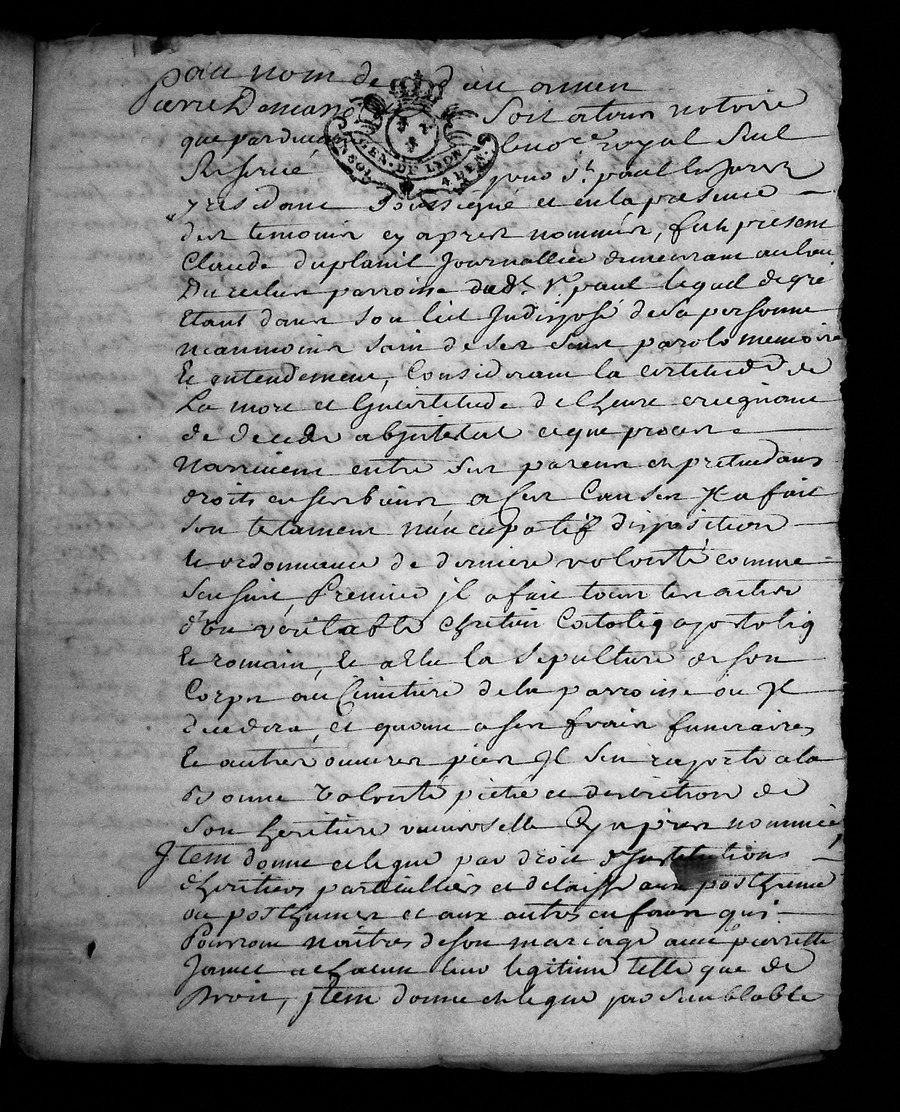 au nom de dieu amen
Pierre Soit atous notoire
que pardevant le no.re royal Seul
Reserué pour S.t paul En Jarez
y residant Soussigné et en la presence
des temoins cy apres nommés, fut present
Claude duplanil Journallier demeurant au lieu
Du parroisse dud.t S.t paul lequel de gré
Etant dans Son lict Indisposé de sa personne
neanmoins sain de ses sens parole memoire
Et entendement, Considerant la certitude de
La mort et Lincertitude de Lheure craignant
de deceder abjntestat et que proces
Narrivent entre Ses parens et pretendans
droits en ses biens a Ses Causes Jl a fait
son testament nuncupatif disposition
et ordonnance de derniere volonté comme
Sensuit Premier jl a fait tous les actes
d'un véritable Chretien Catoliq apostoliq
Et romain, Et a Elu la Sepulture de son
Corps au Cimetiere de la parroisse ou Jl
decedera, et quant a ses frais funeraires
Et autres oeuvres pies Jl s'en raporte a la
Bonne volonté pieté et discretion de
Son heritiere universelle Cy apres nommée
Jtem donne et legue par droit d'Institution
d'heritiers particulliers et delaisse aux posthume
ou posthumes et aux autres enfans qui
Pourront naitres de son mariage avec pierrette
Jamet a chacun leur legitime telle que de
Droit, jtem donne et legue par Semblable
GEN. DE LYON
4 DEN.